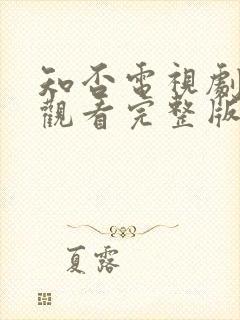 知否電視劇
觀看完整版
夏露